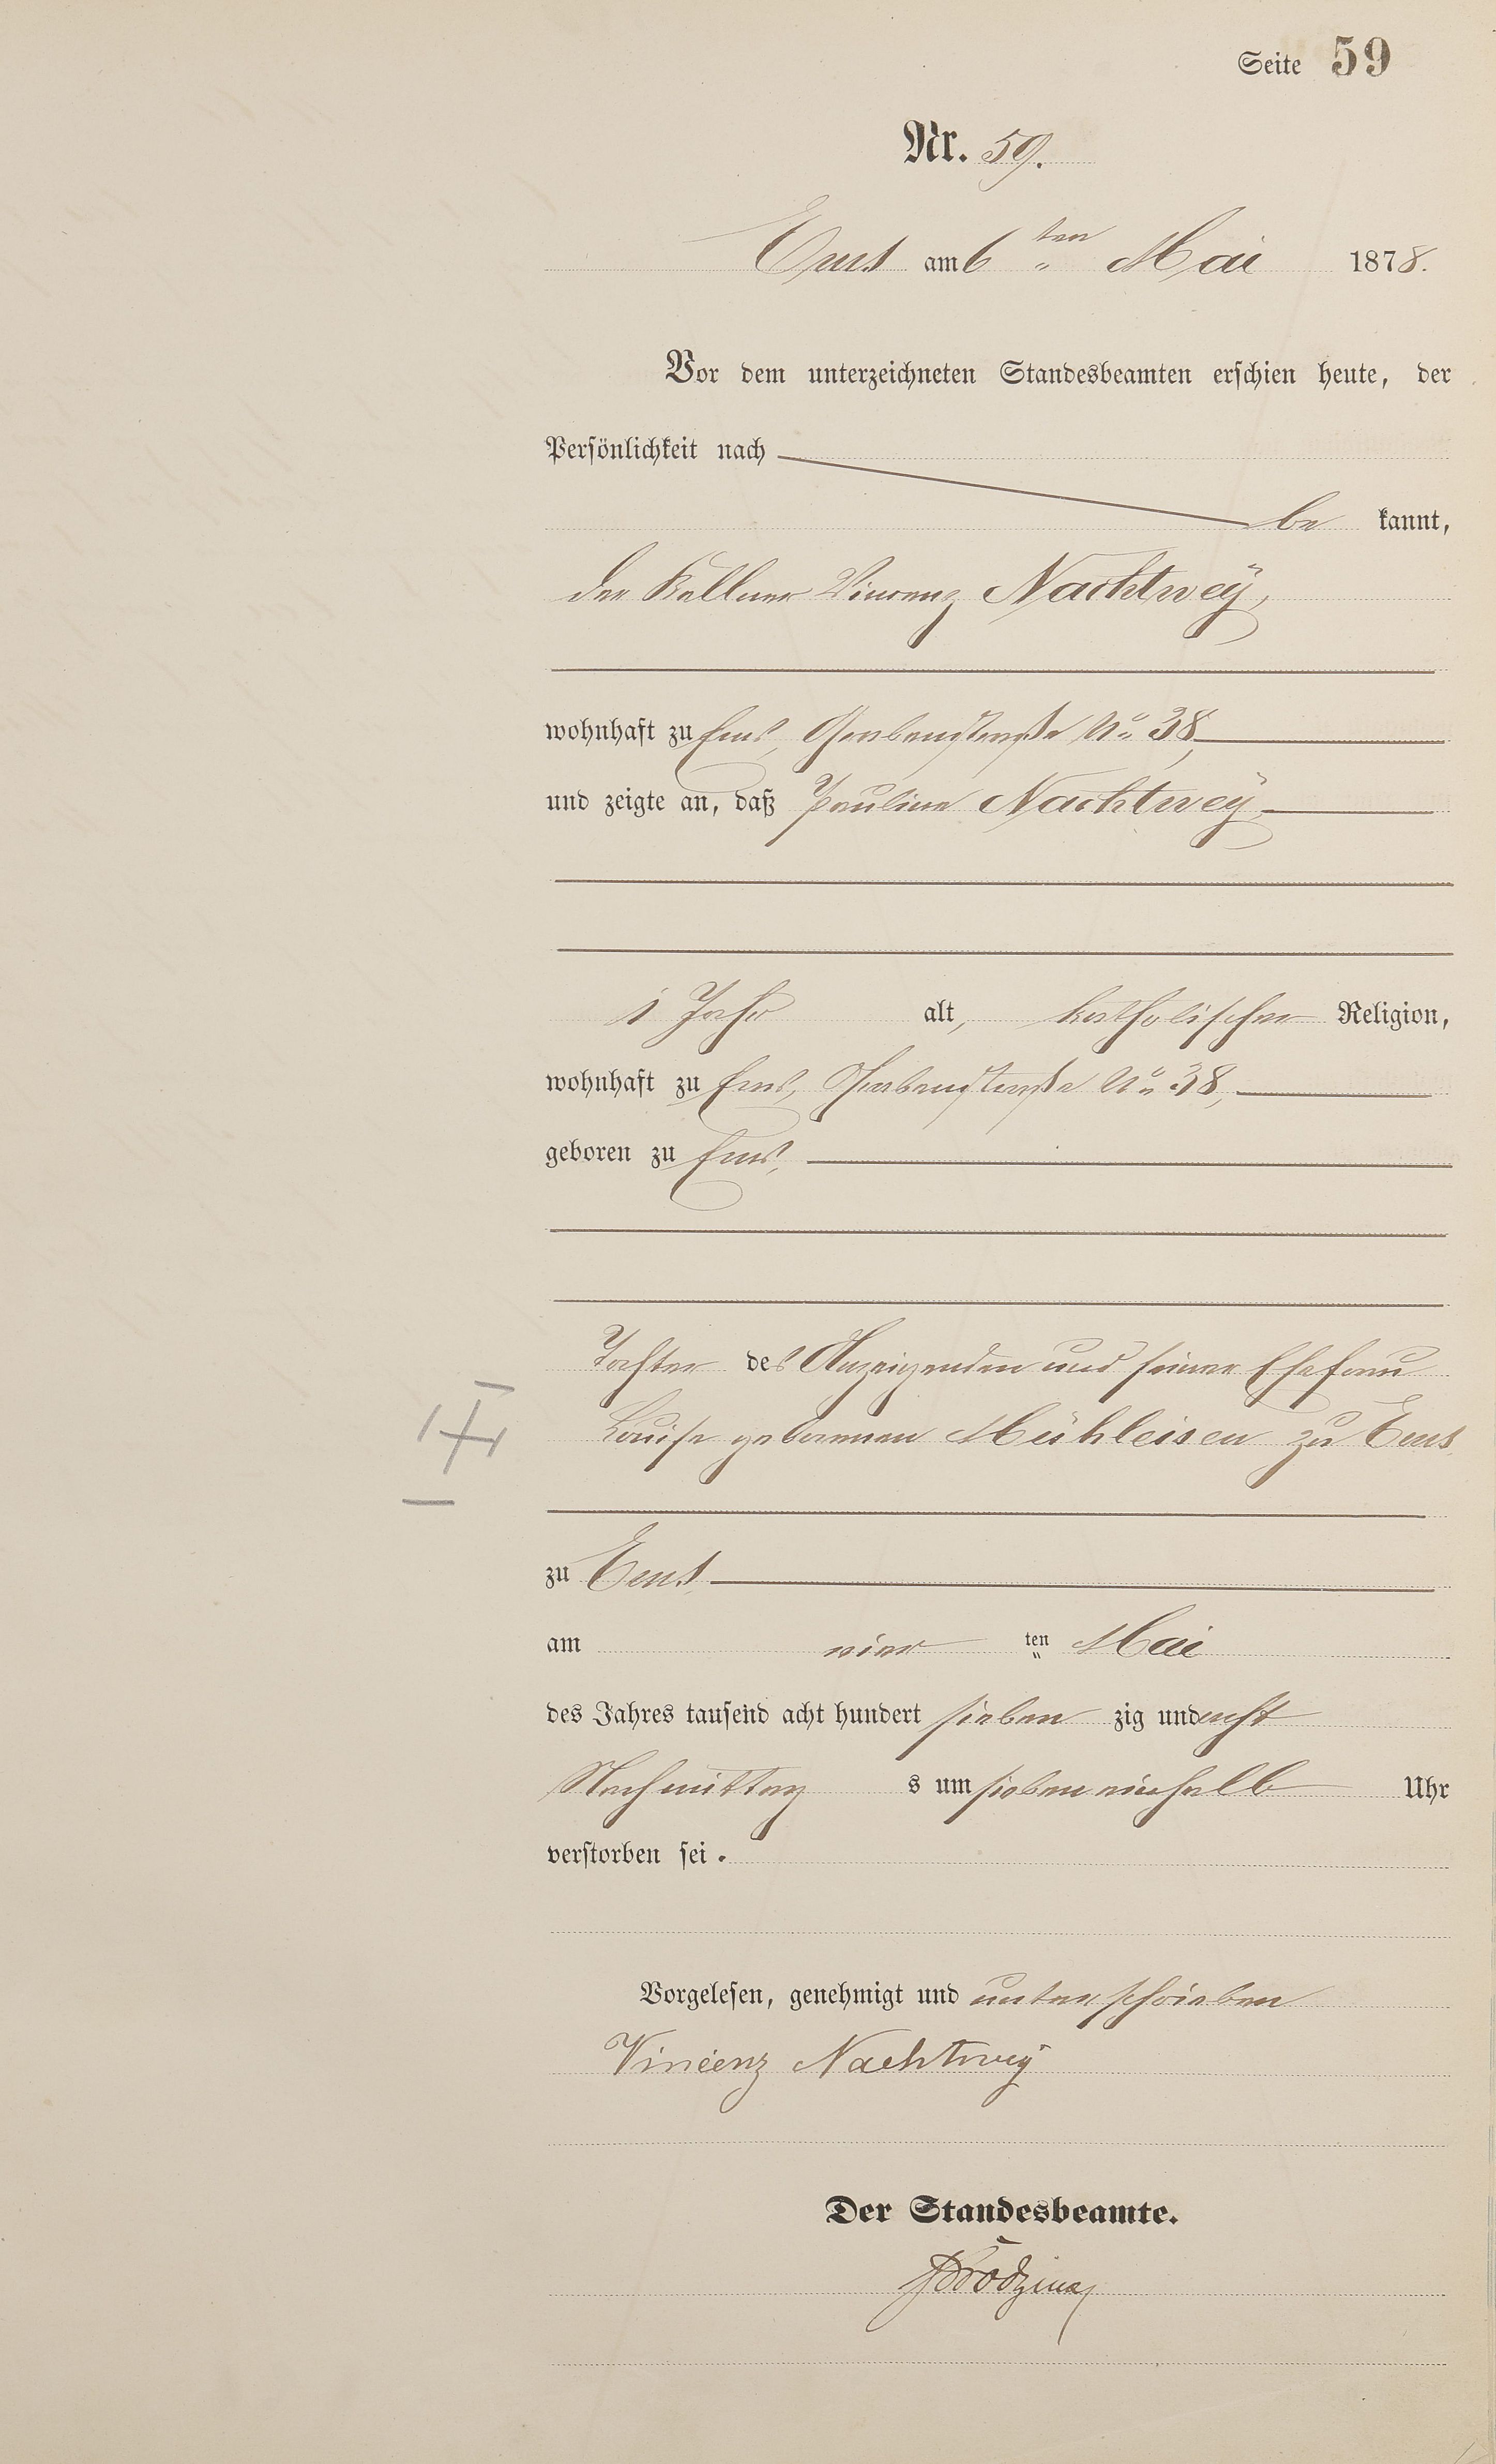 Seite 59
Nr. 59.
Ems am 6 ten Mai 1878.
Vor dem unterzeichneten Standesbeamten erschien heute, der
Persönlichkeit nach
be kannt,
der Kellner Vincenz Nachtweÿ,
wohnhaft zu Ems, Grabenstraße No 38,
und zeigte an, daß Pauline Nachtweÿ
1 Jahr alt, katholischer Religion,
wohnhaft zu Ems, Grabenstraße No 38,
geboren zu Ems,
Tochter des Anzeigenden und seiner Ehefrau
Louise geborenen Mühleisen zu Ems
zu Ems
am vier ten Mai
des Jahres tausend acht hundert sieben zig und acht
Nachmittag s um sieben einhalb Uhr
verstorben sei.
Vorgelesen, genehmigt und unterschrieben
Vincenz Nachtweÿ
Der Standesbeamte.